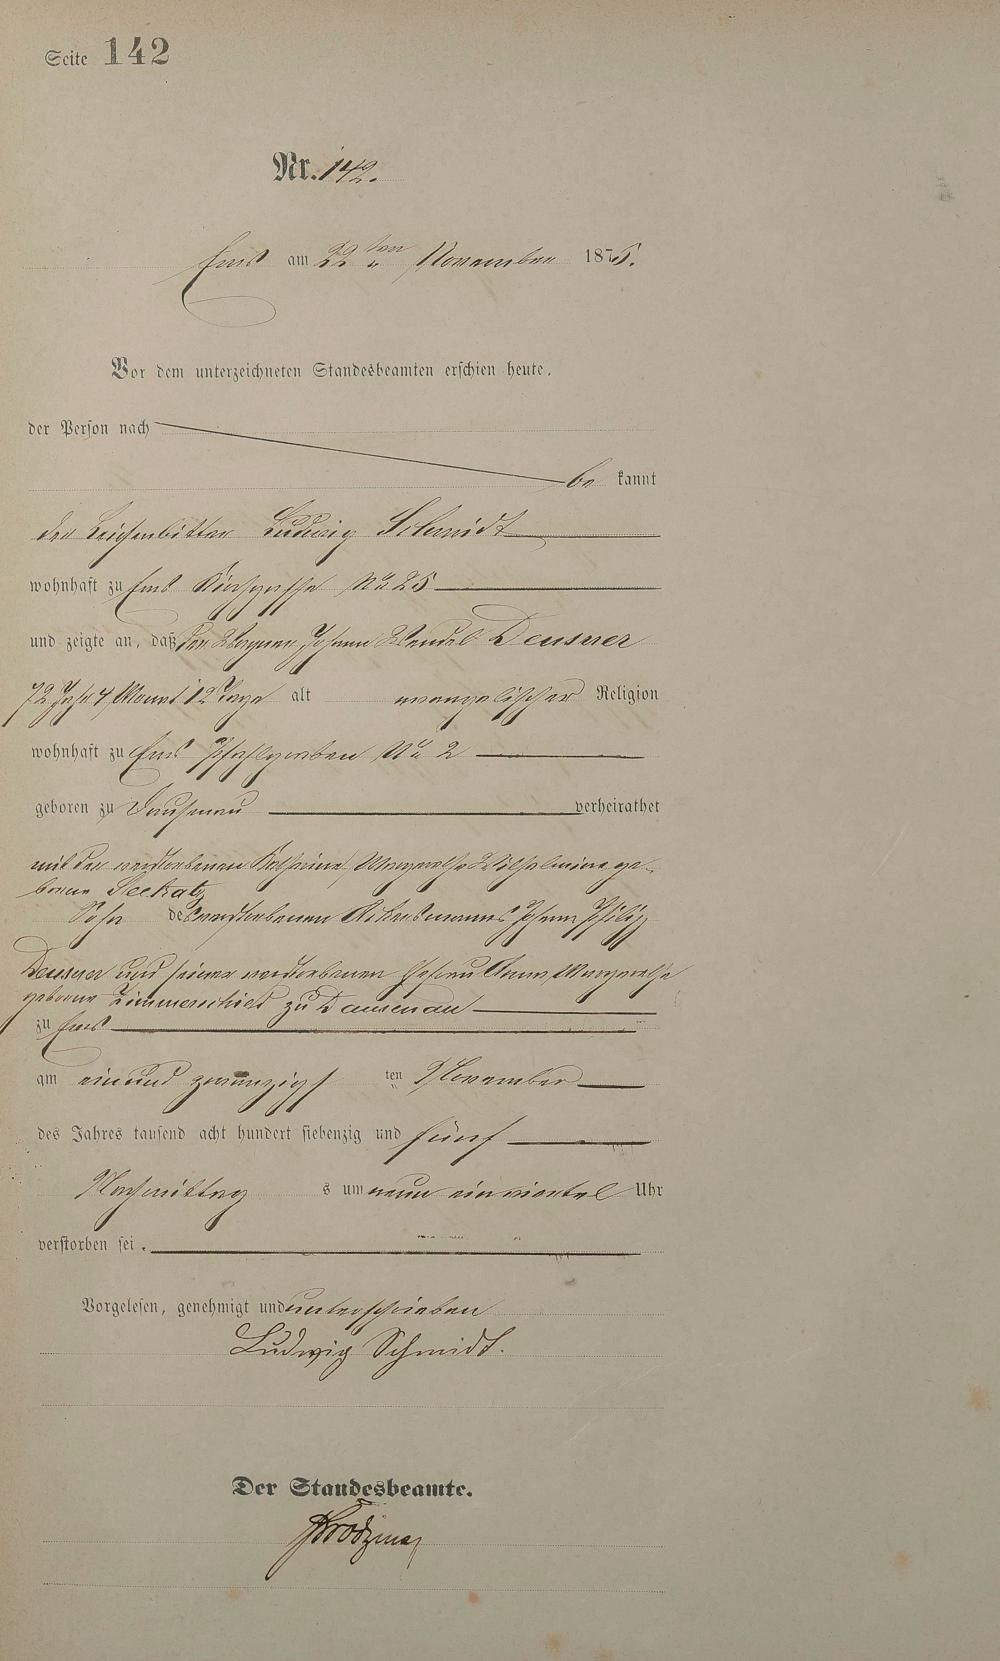 Seite 142
Nr. 142.
Ems am 22 ten November 1875.
Vor dem unterzeichneten Standesbeamten erschien heute,
der Person nach
be kannt
der Leichenbitter Ludwig Schmidt
wohnhaft zu Ems Kirchgasse No 25
und zeigte an, daß der Wagner Johann Wendel Deusner
72 Jahr 4 Monat 12 Tage alt evangelischer Religion
wohnhaft zu Ems Pfahlgraben No 2
geboren zu Dausenau verheirathet
mit der verstorbenen Katharine Margarethe Wilhelmine ge-
borne Seekatz
Sohn des verstorbenen Ackersmannes Johann Philipp
Deusner und seiner verstorbenen Ehefrau Anna Margarethe
geborne Zimmerschied zu Dausenau
zu Ems
am ein und zwanzigs ten November
des Jahres tausend acht hundert siebenzig und fünf
Nachmittag s um neun ein viertel Uhr
verstorben sei.
Vorgelesen, genehmigt und unterschrieben
Ludwig Schmidt.
Der Standesbeamte.